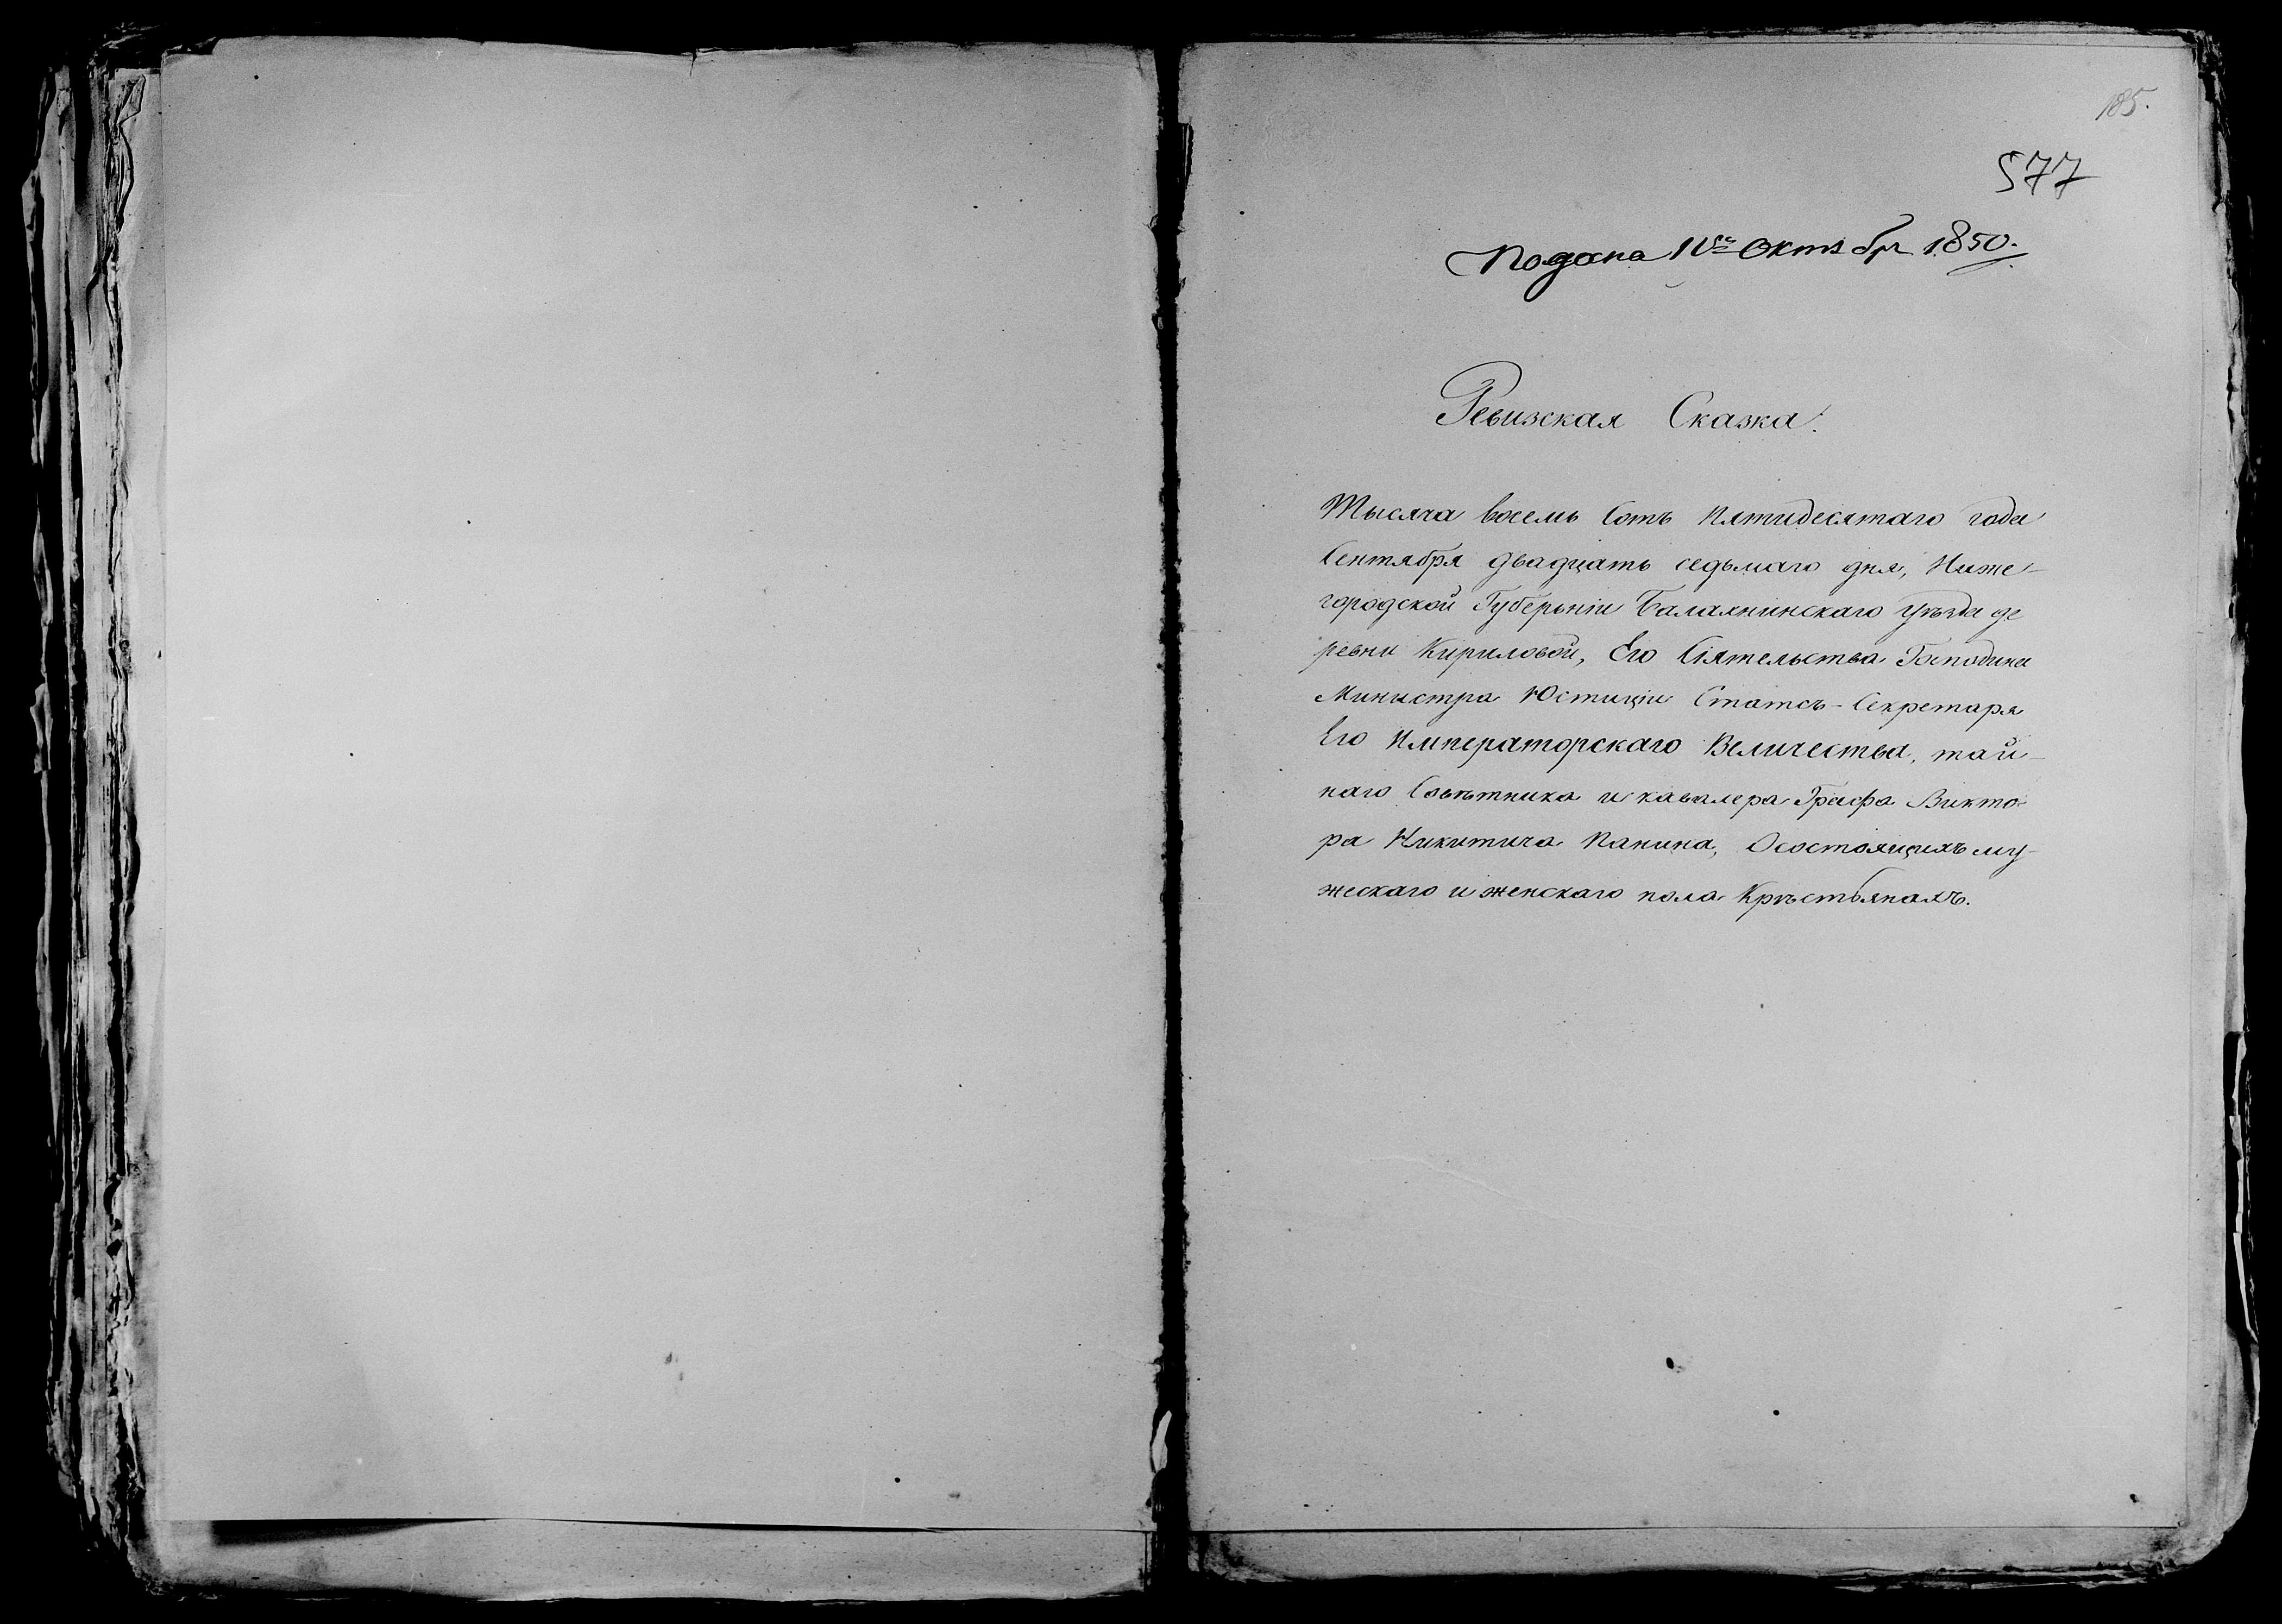 185.
577
Подана Октября 1850.
Ревизская Сказка.
Тысяча восемь Сотъ Пятидесятаго года
Сентября двадцать седьмаго дня, Ниже-
городской Губерніи Балахнинскаго Уѣзда де
ревни Кириловой, Его Сіятельства Господина
Министра Юстиціи Статсъ-Секретаря
Его Императорскаго Величества, тай-
наго Совѣтника и кавалера Графа Викто-
ра Никитича Панина, О состоящихъ му-
жескаго и женскаго пола Крѣстьянахъ.